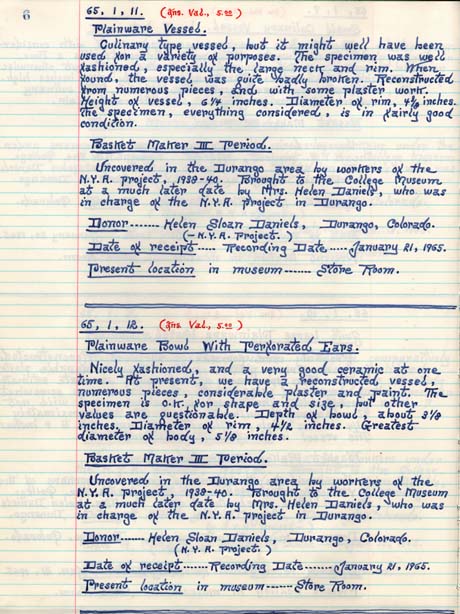 6
65, 1, 11. (Ins. Val., 5.00)
Plainware Vessel.
Culinary type vessel, but it might well have been
used for a variety of purposes. The specimen was well
fashioned, especially the large neck and rim. When
found, the vessel was quite badly broken. Reconstructed
from numerous pieces, and with some plaster work.
Height of vessel, 6 1/4 inches. Diameter of rim, inches.
The specimen, everything considered, is in fairly good
condition.
Basket Maker III Period.
Uncovered in the Durango area by workers of the
N.Y.A. project, 1938-40. Brought to the College Museum
at a much later date by Mrs. Helen Daniels, who was
in charge of the N.Y.A. project in Durango.
Donor------- Helen Sloan Daniels, Durango, Colorado.
(-N.Y.A. Project.)
Date of receipt----- Recording Date ----- January 21, 1965.
Present location in museum------- Store Room.
65, 1, 12. (Ins. Val., 5.00)
Plainware Bowl With Perforated Ears.
Nicely fashioned, and a very good ceramic at one
time. At present, we have a reconstructed vessel,
numerous pieces, considerable plaster and paint. The
specimen is O.K. for shape and size, but other
values are questionable. Depth of bowl, about 3 1/8
inches. Diameter of rim, 4 1/2 inches. Greatest
diameter of body, 5 1/8 inches.
Basket Maker III Period.
Uncovered in the Durango area by workers of the
N.Y.A. project, 1938-40. Brought to the College Museum
at a much later date by Mrs. Helen Daniels, who was
in charge of the N.Y.A. project in Durango.
Donor------ Helen Sloan Daniels, Durango, Colorado.
(N.Y.A. project.)
Date of receipt------ Recording Date ------ January 21, 1965.
Present location in museum ------- Store Room.